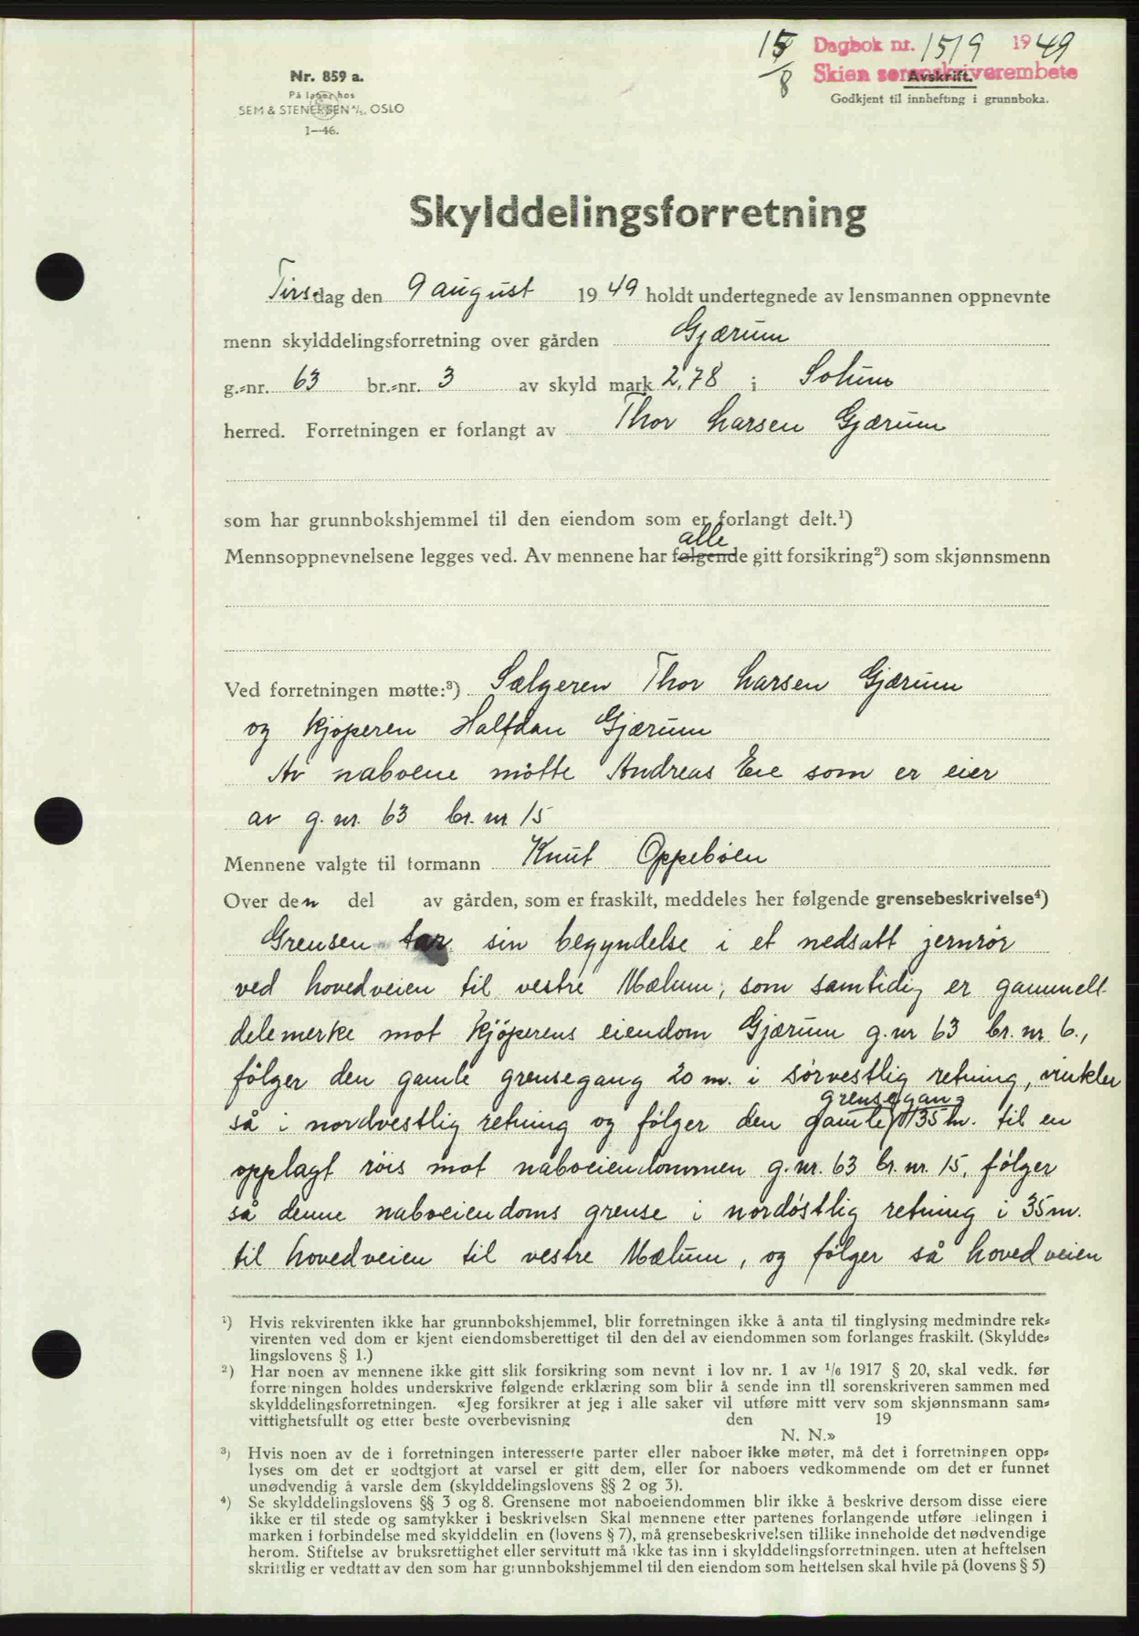 15/8 Dagbok nr. 1519 1949
Skien sorenskriverembete
Avskrift.
Godkjent til innhefting i grunnboka.
Nr. 859 a.
På lager hos
SEM & STENERSEN A/S. OSLO
1—46.
Skylddelingsforretning
Tirsdag den 9 august 1949 holdt undertegnede av lensmannen oppnevnte
menn skylddelingsforretning over gården Gjærum
g.-nr. 63 br.-nr. 3 av skyld mark 2,78 i Solum
herred. Forretningen er forlangt av Thor Larsen Gjærum
som har grunnbokshjemmel til den eiendom som er forlangt delt.¹)
alle
Mennsoppnevnelsene legges ved. Av mennene har følgende gitt forsikring²) som skjønnsmenn
Ved forretningen møtte:³) Sælgeren Thor Larsen Gjærum
og kjøperen Halfdan Gjærum
Av naboene møtte Andreas Eie som er eier
av g. nr. 63 br. nr 15
Mennene valgte til formann Knut Oppebøen
Over den del av gården, som er fraskilt, meddeles her følgende grensebeskrivelse⁴)
Grensen tar sin begyndelse i et nedsatt jernrør
ved hovedveien til vestre Mælum, som samtidig er gammelt
delemerke mot kjøperens eiendom Gjærum g. nr 63 br. nr. 6.,
følger den gamle grensegang 20 m. i sørvestlig retning, vinkler
grensegang
så i nordvestlig retning og følger den gamle 135 m. til en
opplagt røis mot naboeiendommen g. nr. 63 br. nr. 15, følger
så denne naboeiendoms grense i nordøstlig retning i 35 m.
til hovedveien til vestre Mælum, og følger så hovedveien
¹) Hvis rekvirenten ikke har grunnbokshjemmel, blir forretningen ikke å anta til tinglysing medmindre rek-
virenten ved dom er kjent eiendomsberettiget til den del av eiendommen som forlanges fraskilt. (Skyldde-
lingslovens § 1.)
²) Har noen av mennene ikke gitt slik forsikring som nevnt i lov nr. 1 av 1/6 1917 § 20, skal vedk. før
forretningen holdes underskrive følgende erklæring som blir å sende inn til sorenskriveren sammen med
skylddelingsforretningen. «Jeg forsikrer at jeg i alle saker vil utføre mitt verv som skjønnsmann sam-
vittighetsfullt og etter beste overbevisning den 19
N. N.»
³) Hvis noen av de i forretningen interesserte parter eller naboer ikke møter, må det i forretningen opp-
lyses om det er godtgjort at varsel er gitt dem, eller for naboers vedkommende om det er funnet
unødvendig å varsle dem (skylddelingslovens §§ 2 og 3).
⁴) Se skylddelingslovens §§ 3 og 8. Grensene mot naboeiendommen blir ikke å beskrive dersom disse eiere
ikke er til stede og samtykker i beskrivelsen Skal mennene etter partenes forlangende utføre delingen i
marken i forbindelse med skylddelin en (lovens § 7), må grensebeskrivelsen tillike inneholde det nødvendige
herom. Stiftelse av bruksrettighet eller servitutt må ikke tas inn i skylddelingsforretningen. uten at heftelsen
skriftlig er vedtatt av den som har grunnbokshjemmel til den eiendom som heftelsen skal hvile på (lovens § 5)